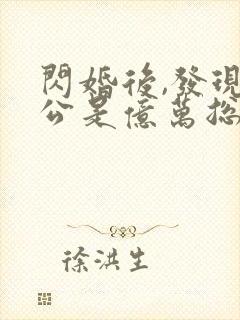 閃婚後,發現
公是億萬總
徐洪生